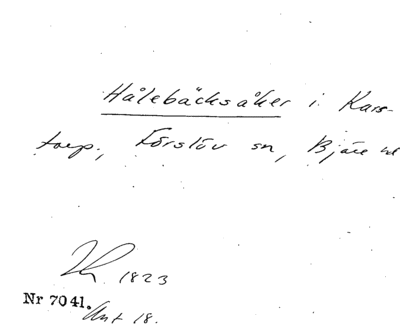 Hålebäcksåker i Kars-
torp, Förslöv sn, Bjäre hd
1823
Nr 7041. Akt 18.